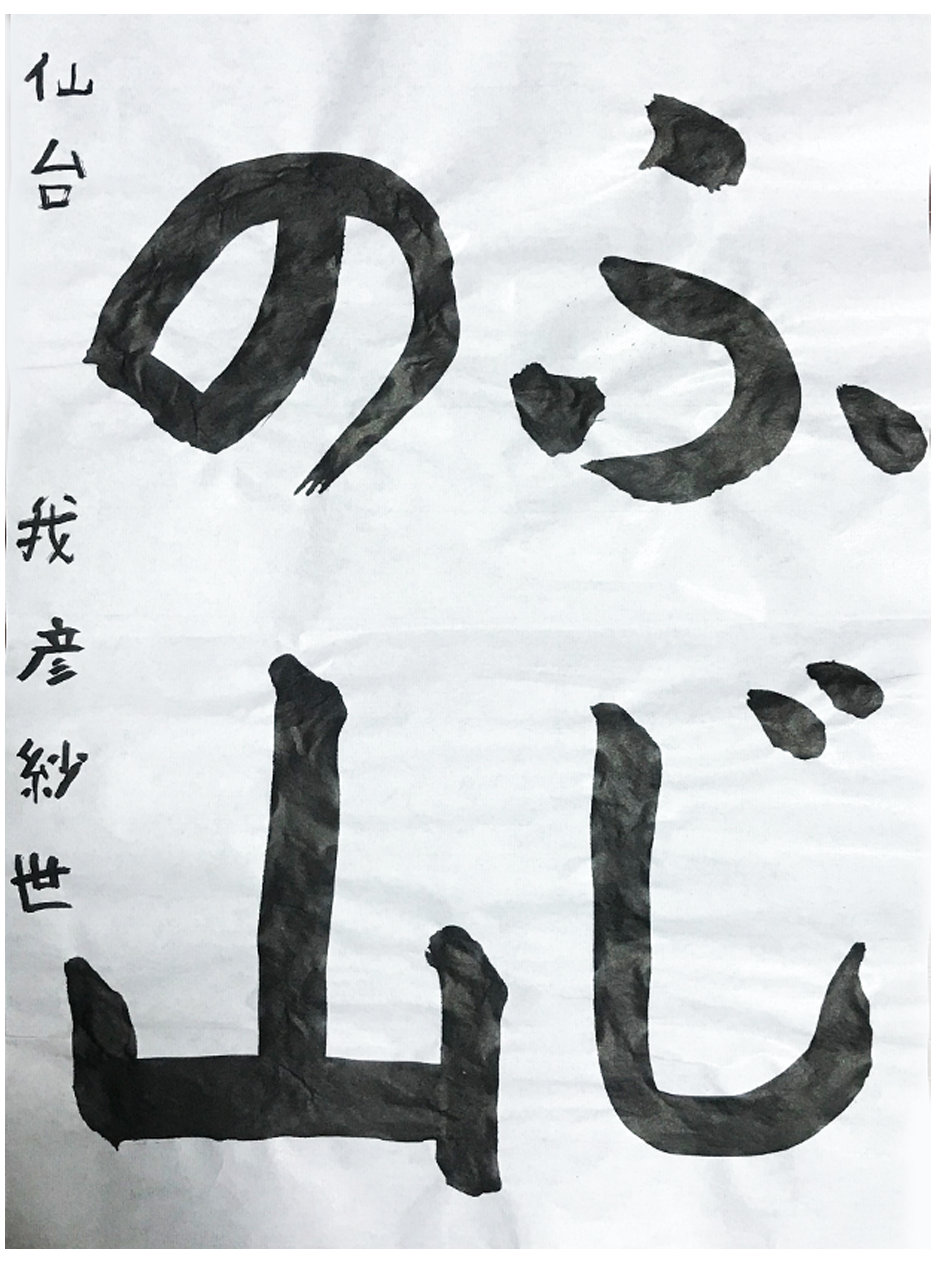 ふじ
の山
仙台 我彦紗世